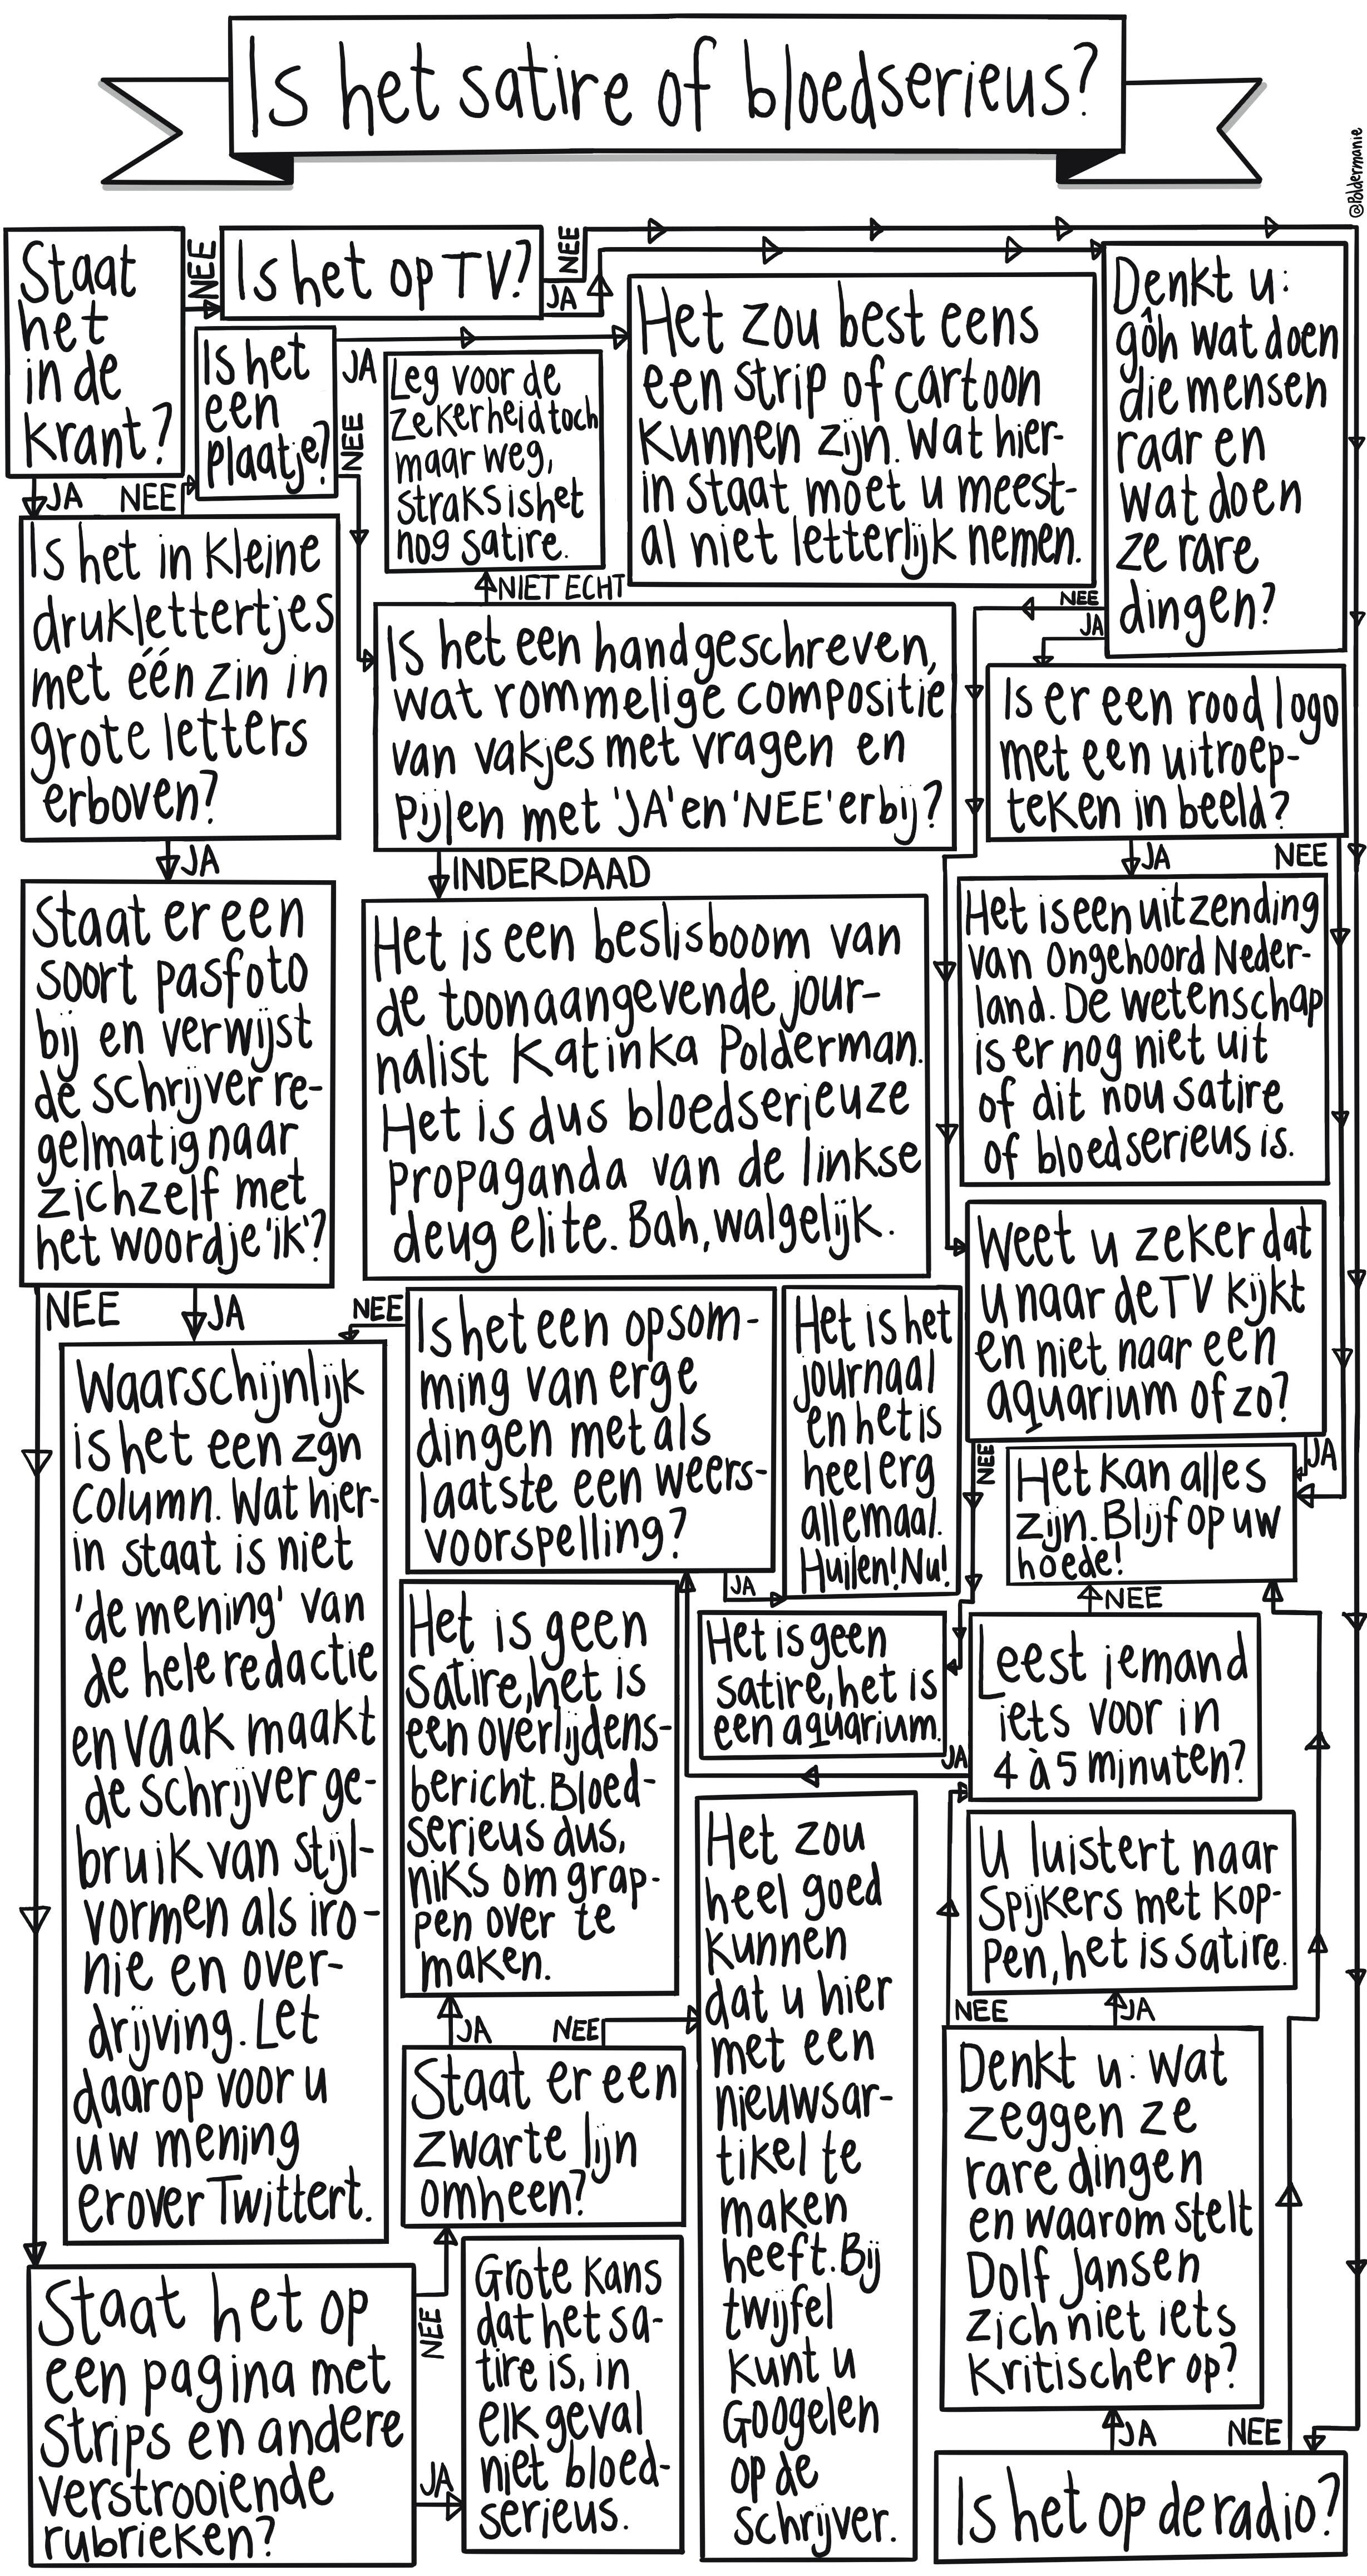 Is het satire of bloedserieus?
@Poldermanie
Staat
het
in de
krant?
NEE
JA
Is het op TV?
NEE
JA
Is het
een
plaatje?
JA
NEE
NEE
Leg voor de
zekerheid toch
maar weg,
straks is het
nog satire.
Het zou best eens
een strip of cartoon
kunnen zijn. Wat hier-
in staat moet u meest-
al niet letterlijk nemen.
Denkt u:
gôh wat doen
die mensen
raar en
wat doen
ze rare
dingen?
NEE
JA
Is het in kleine
druklettertjes
met één zin in
grote letters
erboven?
JA
NIET ECHT
Is het een handgeschreven,
wat rommelige compositie
van vakjes met vragen en
pijlen met 'JA' en 'NEE' erbij?
INDERDAAD
Is er een rood logo
met een uitroep-
teken in beeld?
JA
NEE
Staat er een
soort pasfoto
bij en verwijst
de schrijver re-
gelmatig naar
zichzelf met
het woordje 'ik'?
NEE
JA
Het is een beslisboom van
de toonaangevende jour-
nalist Katinka Polderman.
Het is dus bloedserieuze
propaganda van de linkse
deug elite. Bah, walgelijk.
Het is een uitzending
van Ongehoord Neder-
land. De wetenschap
is er nog niet uit
of dit nou satire
of bloedserieus is.
Weet u zeker dat
u naar de TV kijkt
en niet naar een
aquarium of zo?
NEE
JA
Waarschijnlijk
is het een zgn
column. Wat hier-
in staat is niet
'de mening' van
de hele redactie
en vaak maakt
de schrijver ge-
bruik van stijl-
vormen als iro-
nie en over-
drijving. Let
daarop voor u
uw mening
erover Twittert.
NEE
Is het een opsom-
ming van erge
dingen met als
laatste een weers-
voorspelling?
JA
Het is het
journaal
en het is
heel erg
allemaal.
Huilen! Nu!
Het kan alles
zijn. Blijf op uw
hoede!
NEE
Het is geen
satire, het is
een overlijdens-
bericht. Bloed-
serieus dus,
niks om grap-
pen over te
maken.
Het is geen
satire, het is
een aquarium.
JA
Leest iemand
iets voor in
4 à 5 minuten?
U luistert naar
Spijkers met Kop-
pen, het is satire.
NEE
JA
Het zou
heel goed
kunnen
dat u hier
met een
nieuwsar-
tikel te
maken
heeft. Bij
twijfel
kunt u
Googelen
op de
schrijver.
JA
NEE
Staat er een
zwarte lijn
omheen?
Denkt u: wat
zeggen ze
rare dingen
en waarom stelt
Dolf Jansen
zich niet iets
kritischer op?
JA
NEE
Staat het op
een pagina met
strips en andere
verstrooiende
rubrieken?
NEE
JA
Grote kans
dat het sa-
tire is, in
elk geval
niet bloed-
serieus.
Is het op de radio?